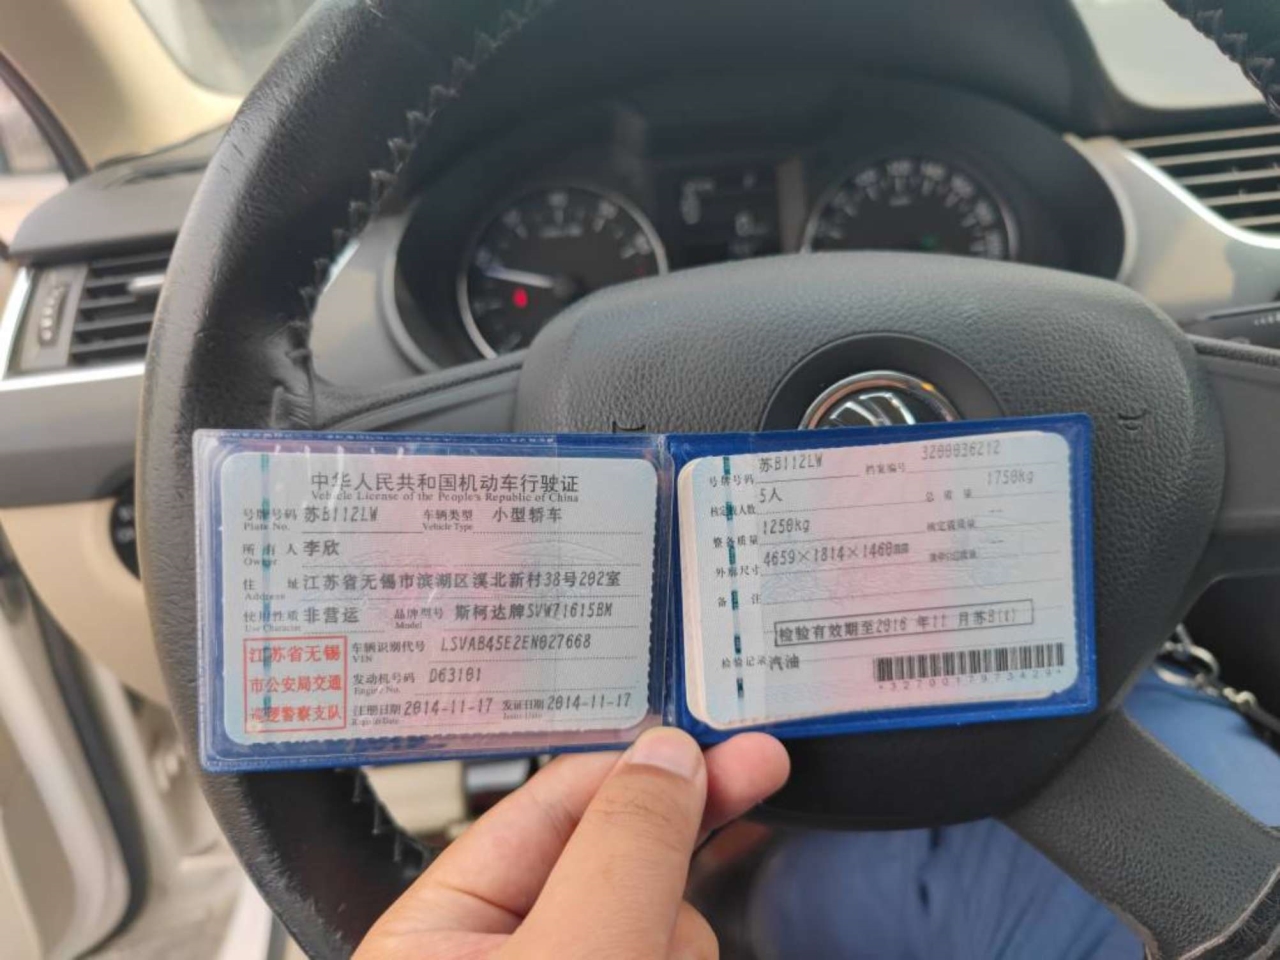 中华人民共和国机动车行驶证
Vehicle License of the People's Republic of China
号牌号码 苏B112LW 车辆类型 小型轿车
Plate No. Vehicle Type
所有人 李欣
Owner
住址 江苏省无锡市滨湖区溪北新村38号202室
Address
使用性质 非营运 品牌型号 斯柯达牌SVW71615BM
Use Character Model
江苏省无锡
市公安局交通
巡逻警察支队
车辆识别代号 LSVAB45E2EN027668
VIN
发动机号码 D63101
Engine No.
注册日期 2014-11-17 发证日期 2014-11-17
Register Date Issue Date
号牌号码 苏B112LW 档案编号 3200036212
核定载人数 5人 总质量 1750kg
整备质量 1250kg 核定载质量 --
外廓尺寸 4659×1814×1460 --
备注
检验有效期至2016年11月苏B(t)
检验记录 汽油
*3270017973426*